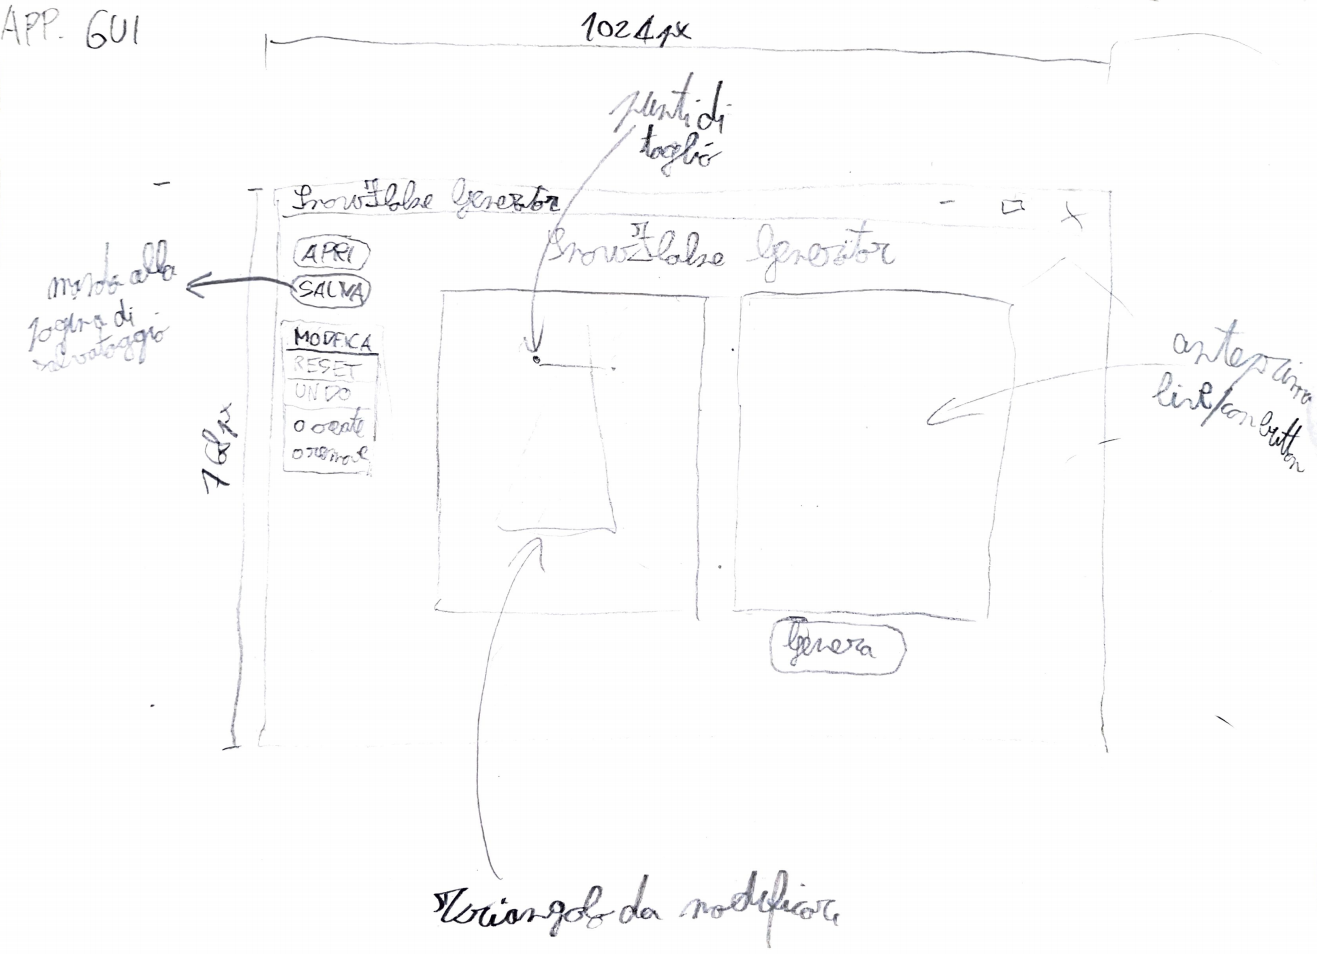 APP. GUI
1024px
punti di
taglio
SnowFlake Generator
SnowFlake Generator
APRI
SALVA
manda alla
pagina di
salvataggio
MODIFICA
RESET
UNDO
remove
768px
anteprima
live/con button
Genera
Triangolo da modificare